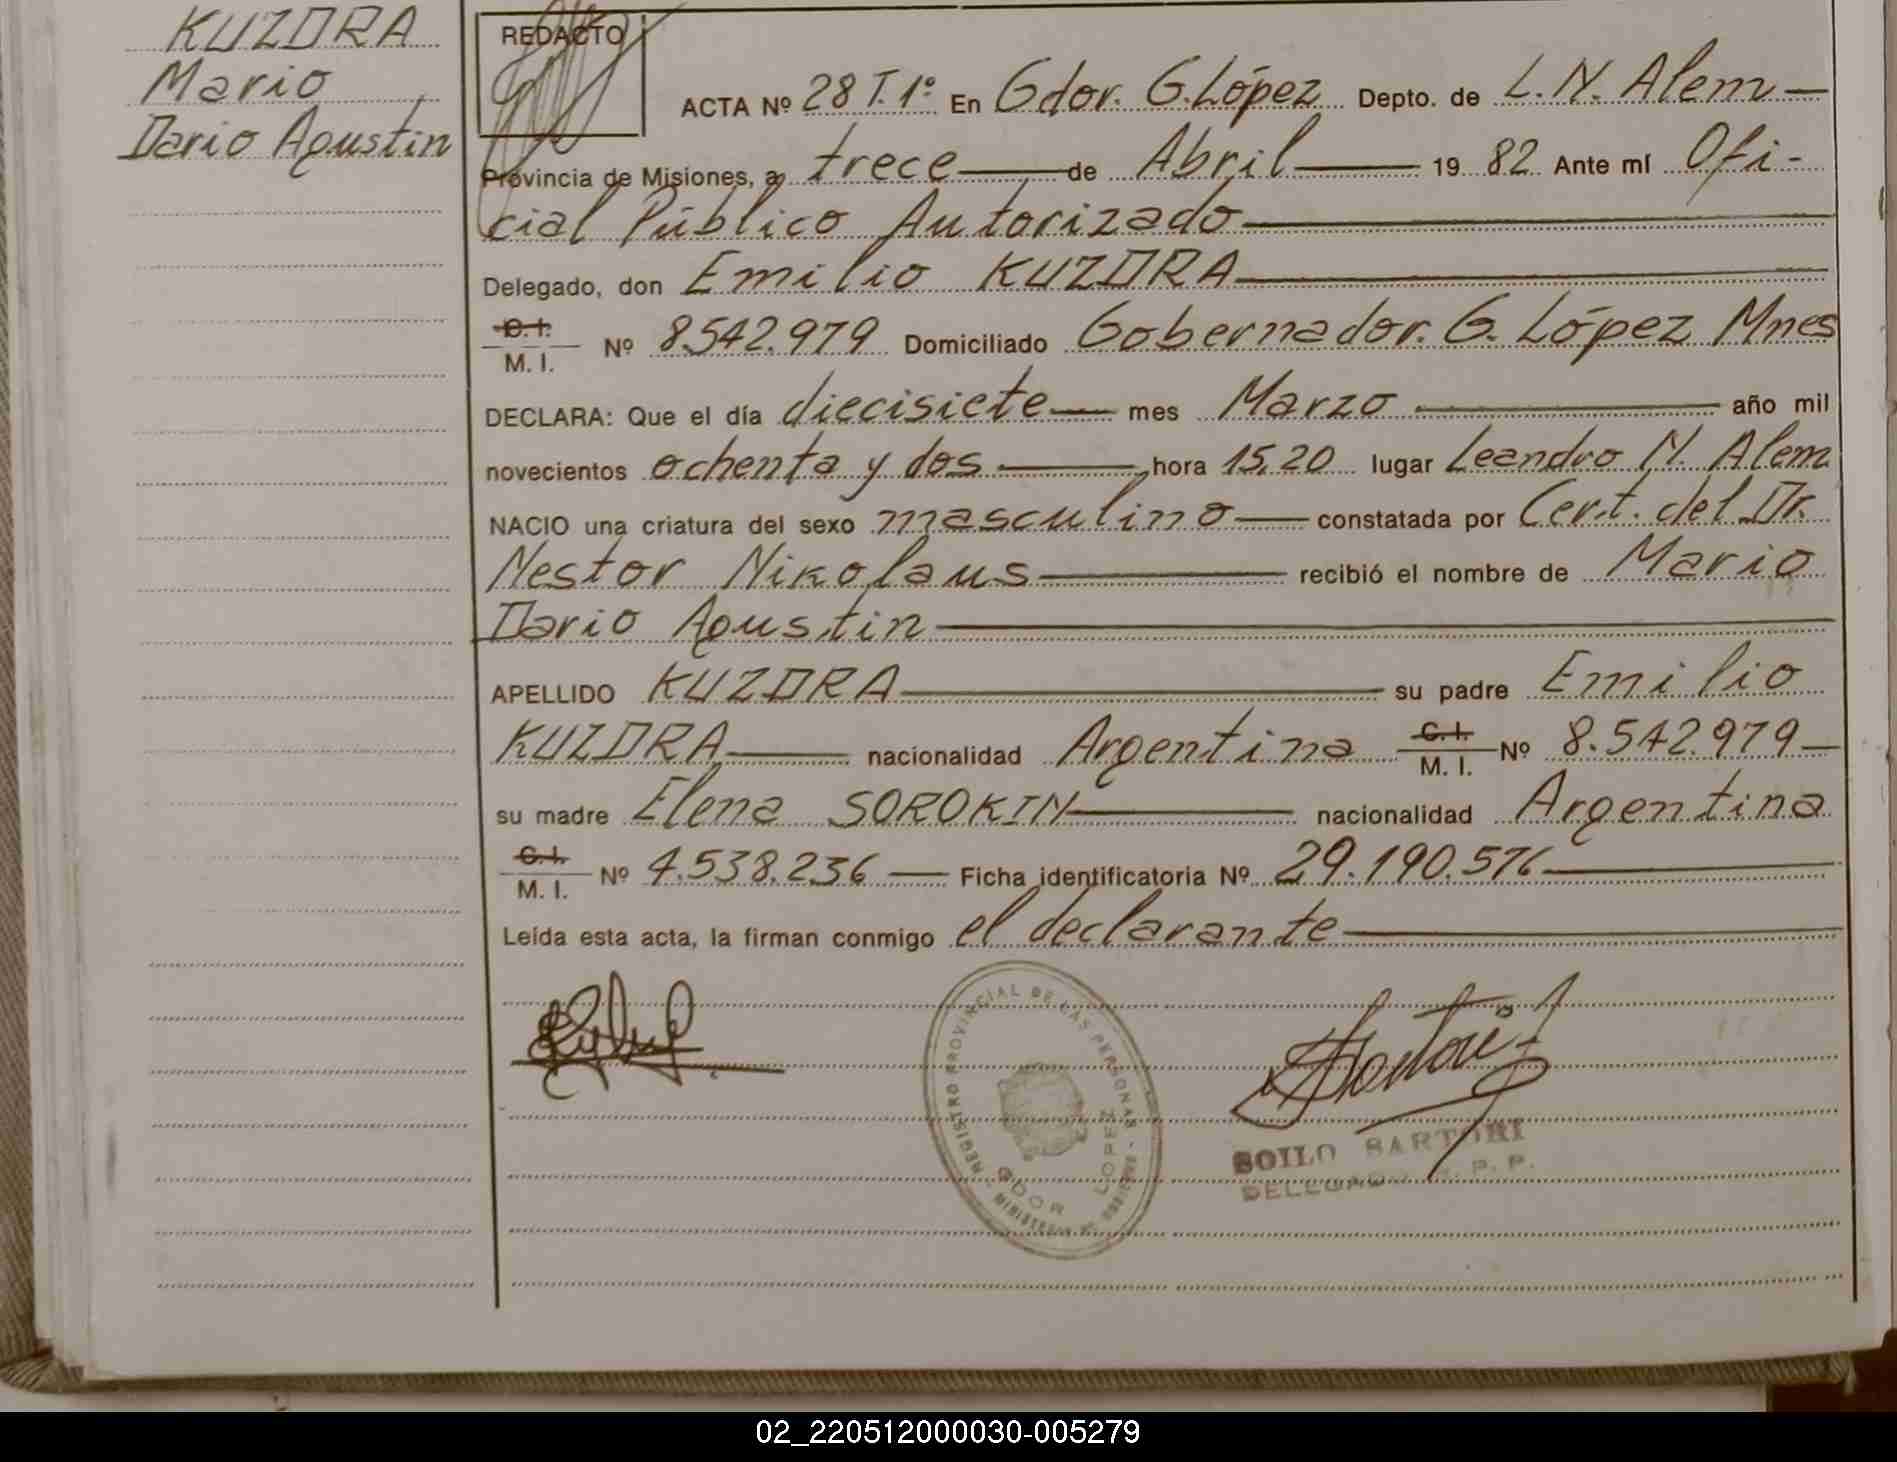 KUZDRA
Mario
Dario Agustin
REDACTO
ACTA Nº 28 T. 1º En Gdor. G. López Depto. de L. N. Alem
Provincia de Misiones, a trece de Abril 19 82 Ante mí Ofi-
cial Público Autorizado
Delegado, don Emilio KUZDRA
C. I.
M. I. Nº 8.542.979 Domiciliado Gobernador. G. López Mnes
DECLARA: Que el día diecisiete mes Marzo año mil
novecientos ochenta y dos hora 15,20 lugar Leandro N. Alem
NACIO una criatura del sexo masculino constatada por Cert. del Dr.
Nestor Nikolaus recibió el nombre de Mario
Dario Agustin
APELLIDO KUZDRA su padre Emilio
KUZDRA nacionalidad Argentina C. I. M. I. Nº 8.542.979
su madre Elena SOROKIN nacionalidad Argentina
C. I.
M. I. Nº 4.538.236 Ficha identificatoria Nº 29.190.576
Leída esta acta, la firman conmigo el declarante
REGISTRO PROVINCIAL DE LAS PERSONAS
GDOR LOPEZ
SOILO SARTORI
02_220512000030-005279